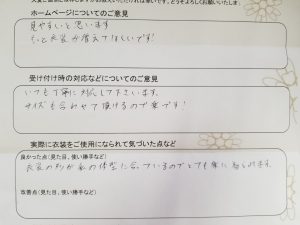 ホームページについてのご意見
見やすいと思います。
もっと衣装が増えてほしいです!
受け付け時の対応などについてのご意見
いつも丁寧に対応して下さいます。
サイズも合わせて頂けるので楽です!
実際に衣装をご使用になられて気づいた点など
良かった点(見た目、使い勝手など)
衣装の形が私の体型に合っているのでとても楽に着られます。
改善点(見た目、使い勝手など)